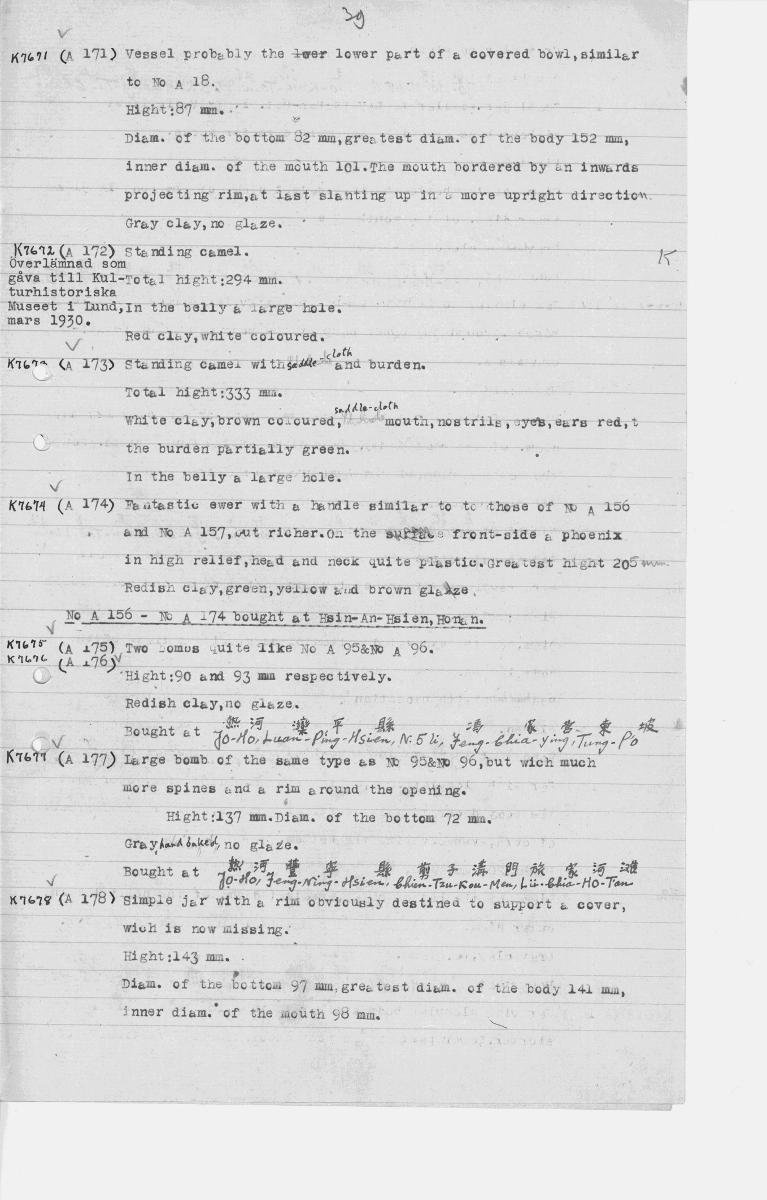 39
K7671 (A 171) Vessel probably the lwer lower part of a covered bowl,similar
to No A 18.
Hight:87 mm.
Diam. of the bottom 82 mm,greatest diam. of the body 152 mm,
inner diam. of the mouth 101.The mouth bordered by an inwards
projecting rim,at last slanting up in a more upright direction.
Gray clay,no glaze.
K7672 (A 172) Standing camel. K
Överlämnad som
gåva till Kul-
turhistoriska
Museet i Lund,
mars 1930.
Total hight:294 mm.
In the belly a large hole.
Red clay,white coloured.
(A 173) Standing camel with saddle-cloth and burden.
Total hight:333 mm.
White clay,brown coloured, saddle-cloth mouth,nostrils,eyes,ears red,t
the burden partially green.
In the belly a large hole.
K7674 (A 174) Fantastic ewer with a handle similar to to those of No A 156
and No A 157,but richer.On the surface front-side a phoenix
in high relief,head and neck quite plastic.Greatest hight 205 mm.
Redish clay,green,yellow and brown glaze.
No A 156 - No A 174 bought at Hsin-An-Hsien,Honan.
K7675 (A 175) Two bombs quite like No A 95&No A 96.
K7676 (A 176)
Hight:90 and 93 mm respectively.
Redish clay,no glaze.
熱河 灤平縣 馮家營東坡
Bought at Jo-Ho, Luan-Ping-Hsien, N. 5 li, Feng-Chia-Ying, Tung-P'o
K7677 (A 177) Large bomb of the same type as No 95&No 96,but wich much
more spines and a rim around the opening.
Hight:137 mm.Diam. of the bottom 72 mm.
Gray, hard baked, no glaze.
熱河豐寧縣剪子溝門旅家河灘
Bought at Jo-Ho, Feng-Ning-Hsien, Chien-Tzu-Kou-Men, Lü-Chia-Ho-Tan
K7678 (A 178) Simple jar with a rim obviously destined to support a cover,
wich is now missing.
Hight:143 mm.
Diam. of the bottom 97 mm,greatest diam. of the body 141 mm,
inner diam. of the mouth 98 mm.